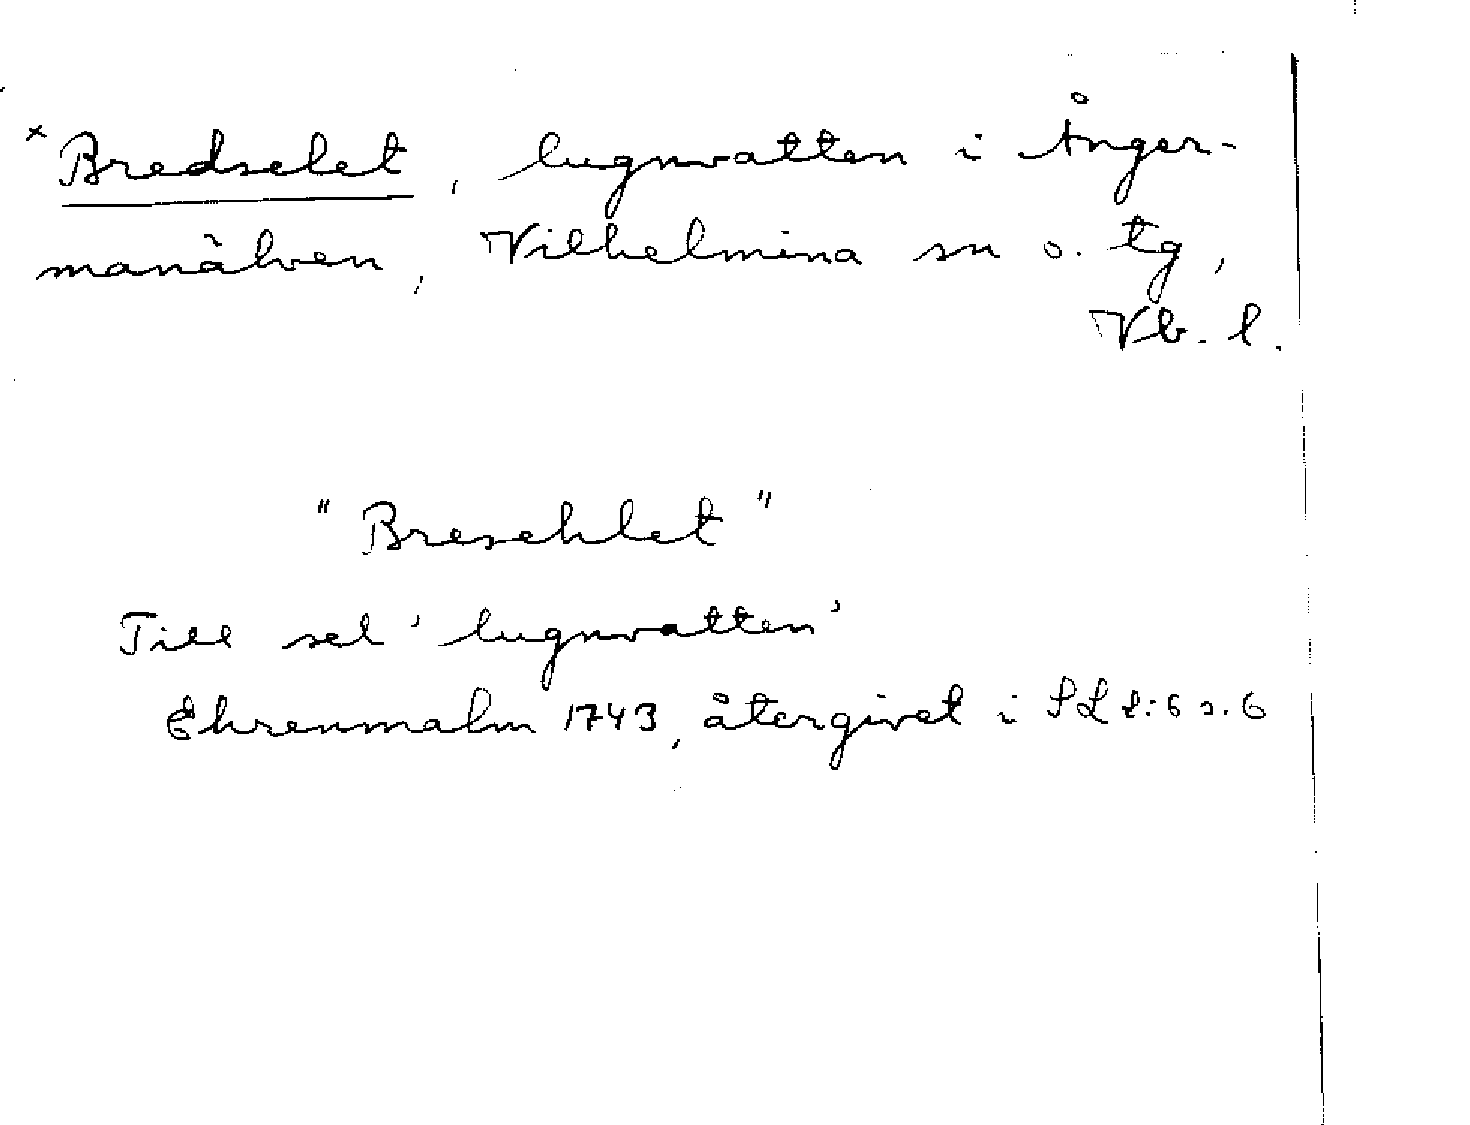 ×Bredselet, lugnvatten i Ånger-
manälven, Vilhelmina sn o. tg,
Vb. l.
"Breschlet"
Till sel 'lugnvatten'
Ehrenmalm 1743, återgivet i SL 1:6 s. 6